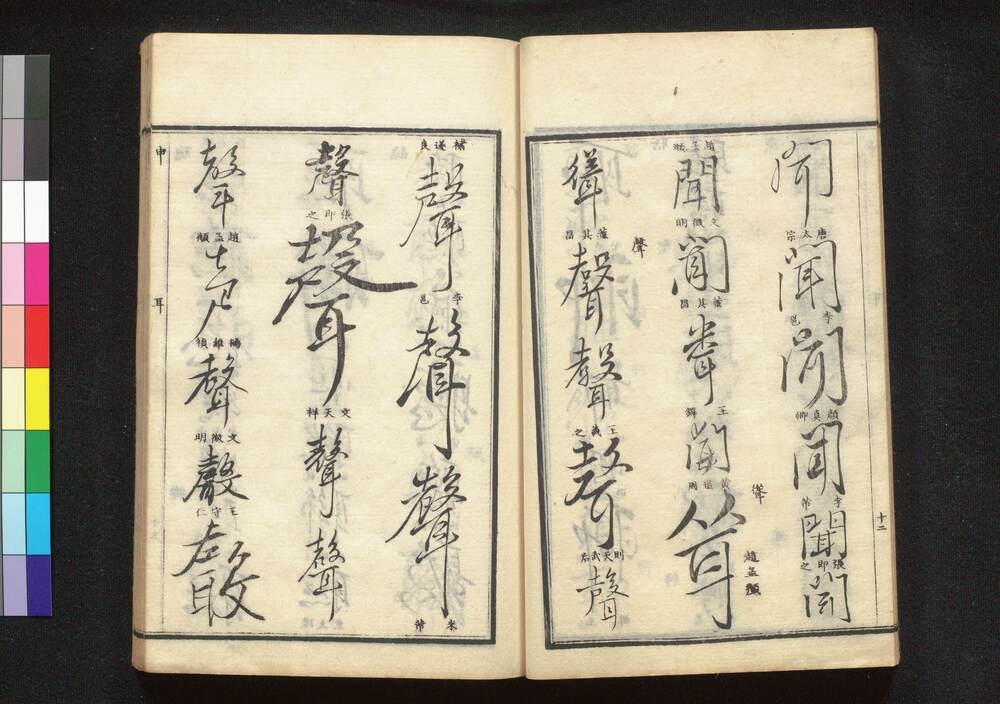 聞
唐太宗
聞
李邕
聞
顏真卿
聞
聞
張即之
聞
十二
聞
文徵明
聞
董其昌
聞
王鐸
聞
黃道周
聳
聳
趙孟頫
聳
董其昌
聲
聲
聲
王羲之
聲
則天武后
聲
褚遂良
聲
李邕
聲
聲
米芾
聲
張即之
聲
文天祥
聲
聲
聲
趙孟頫
聲
楊維禎
聲
文徵明
聲
王守仁
聲
申
耳